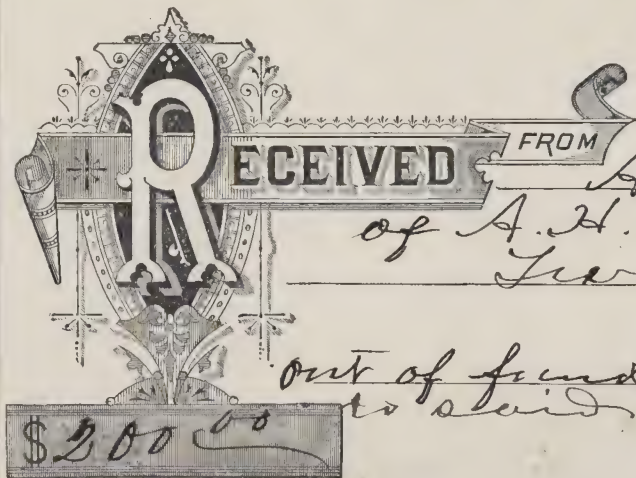 RECEIVED FROM
of A. H.
out of fund
to said
$200 00